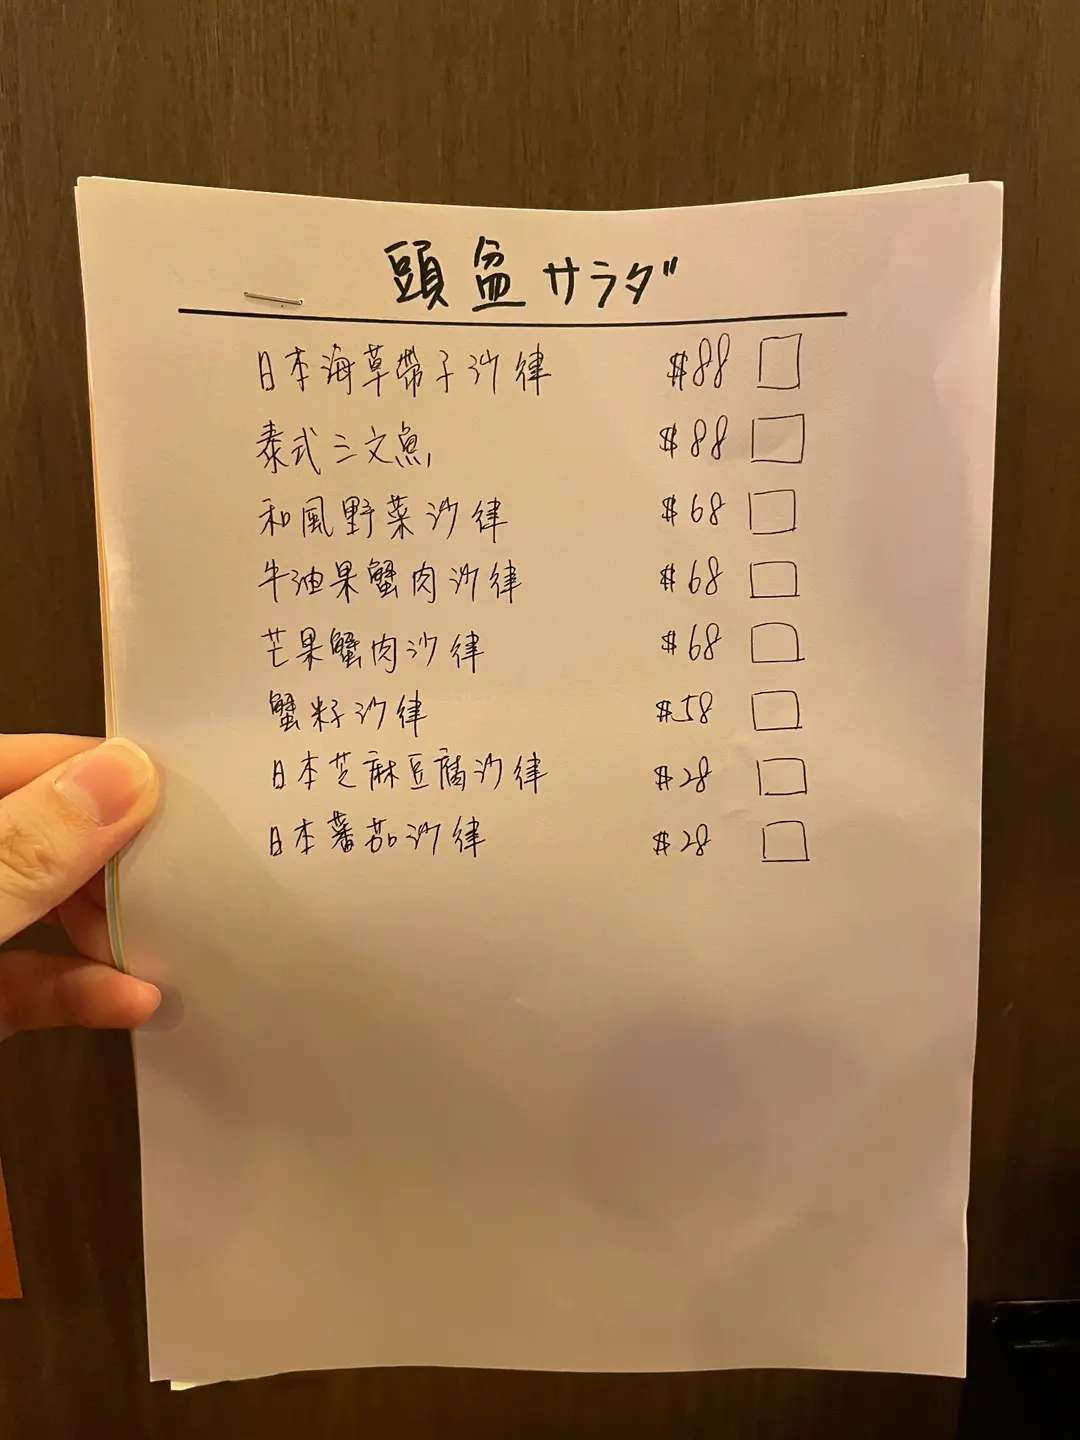 頭盆 サラダ
日本海草帶子沙律 $88
泰式三文魚 $88
和風野菜沙律 $68
牛油果蟹肉沙律 $68
芒果蟹肉沙律 $68
蟹籽沙律 $58
日本芝麻豆腐沙律 $28
日本蕃茄沙律 $28